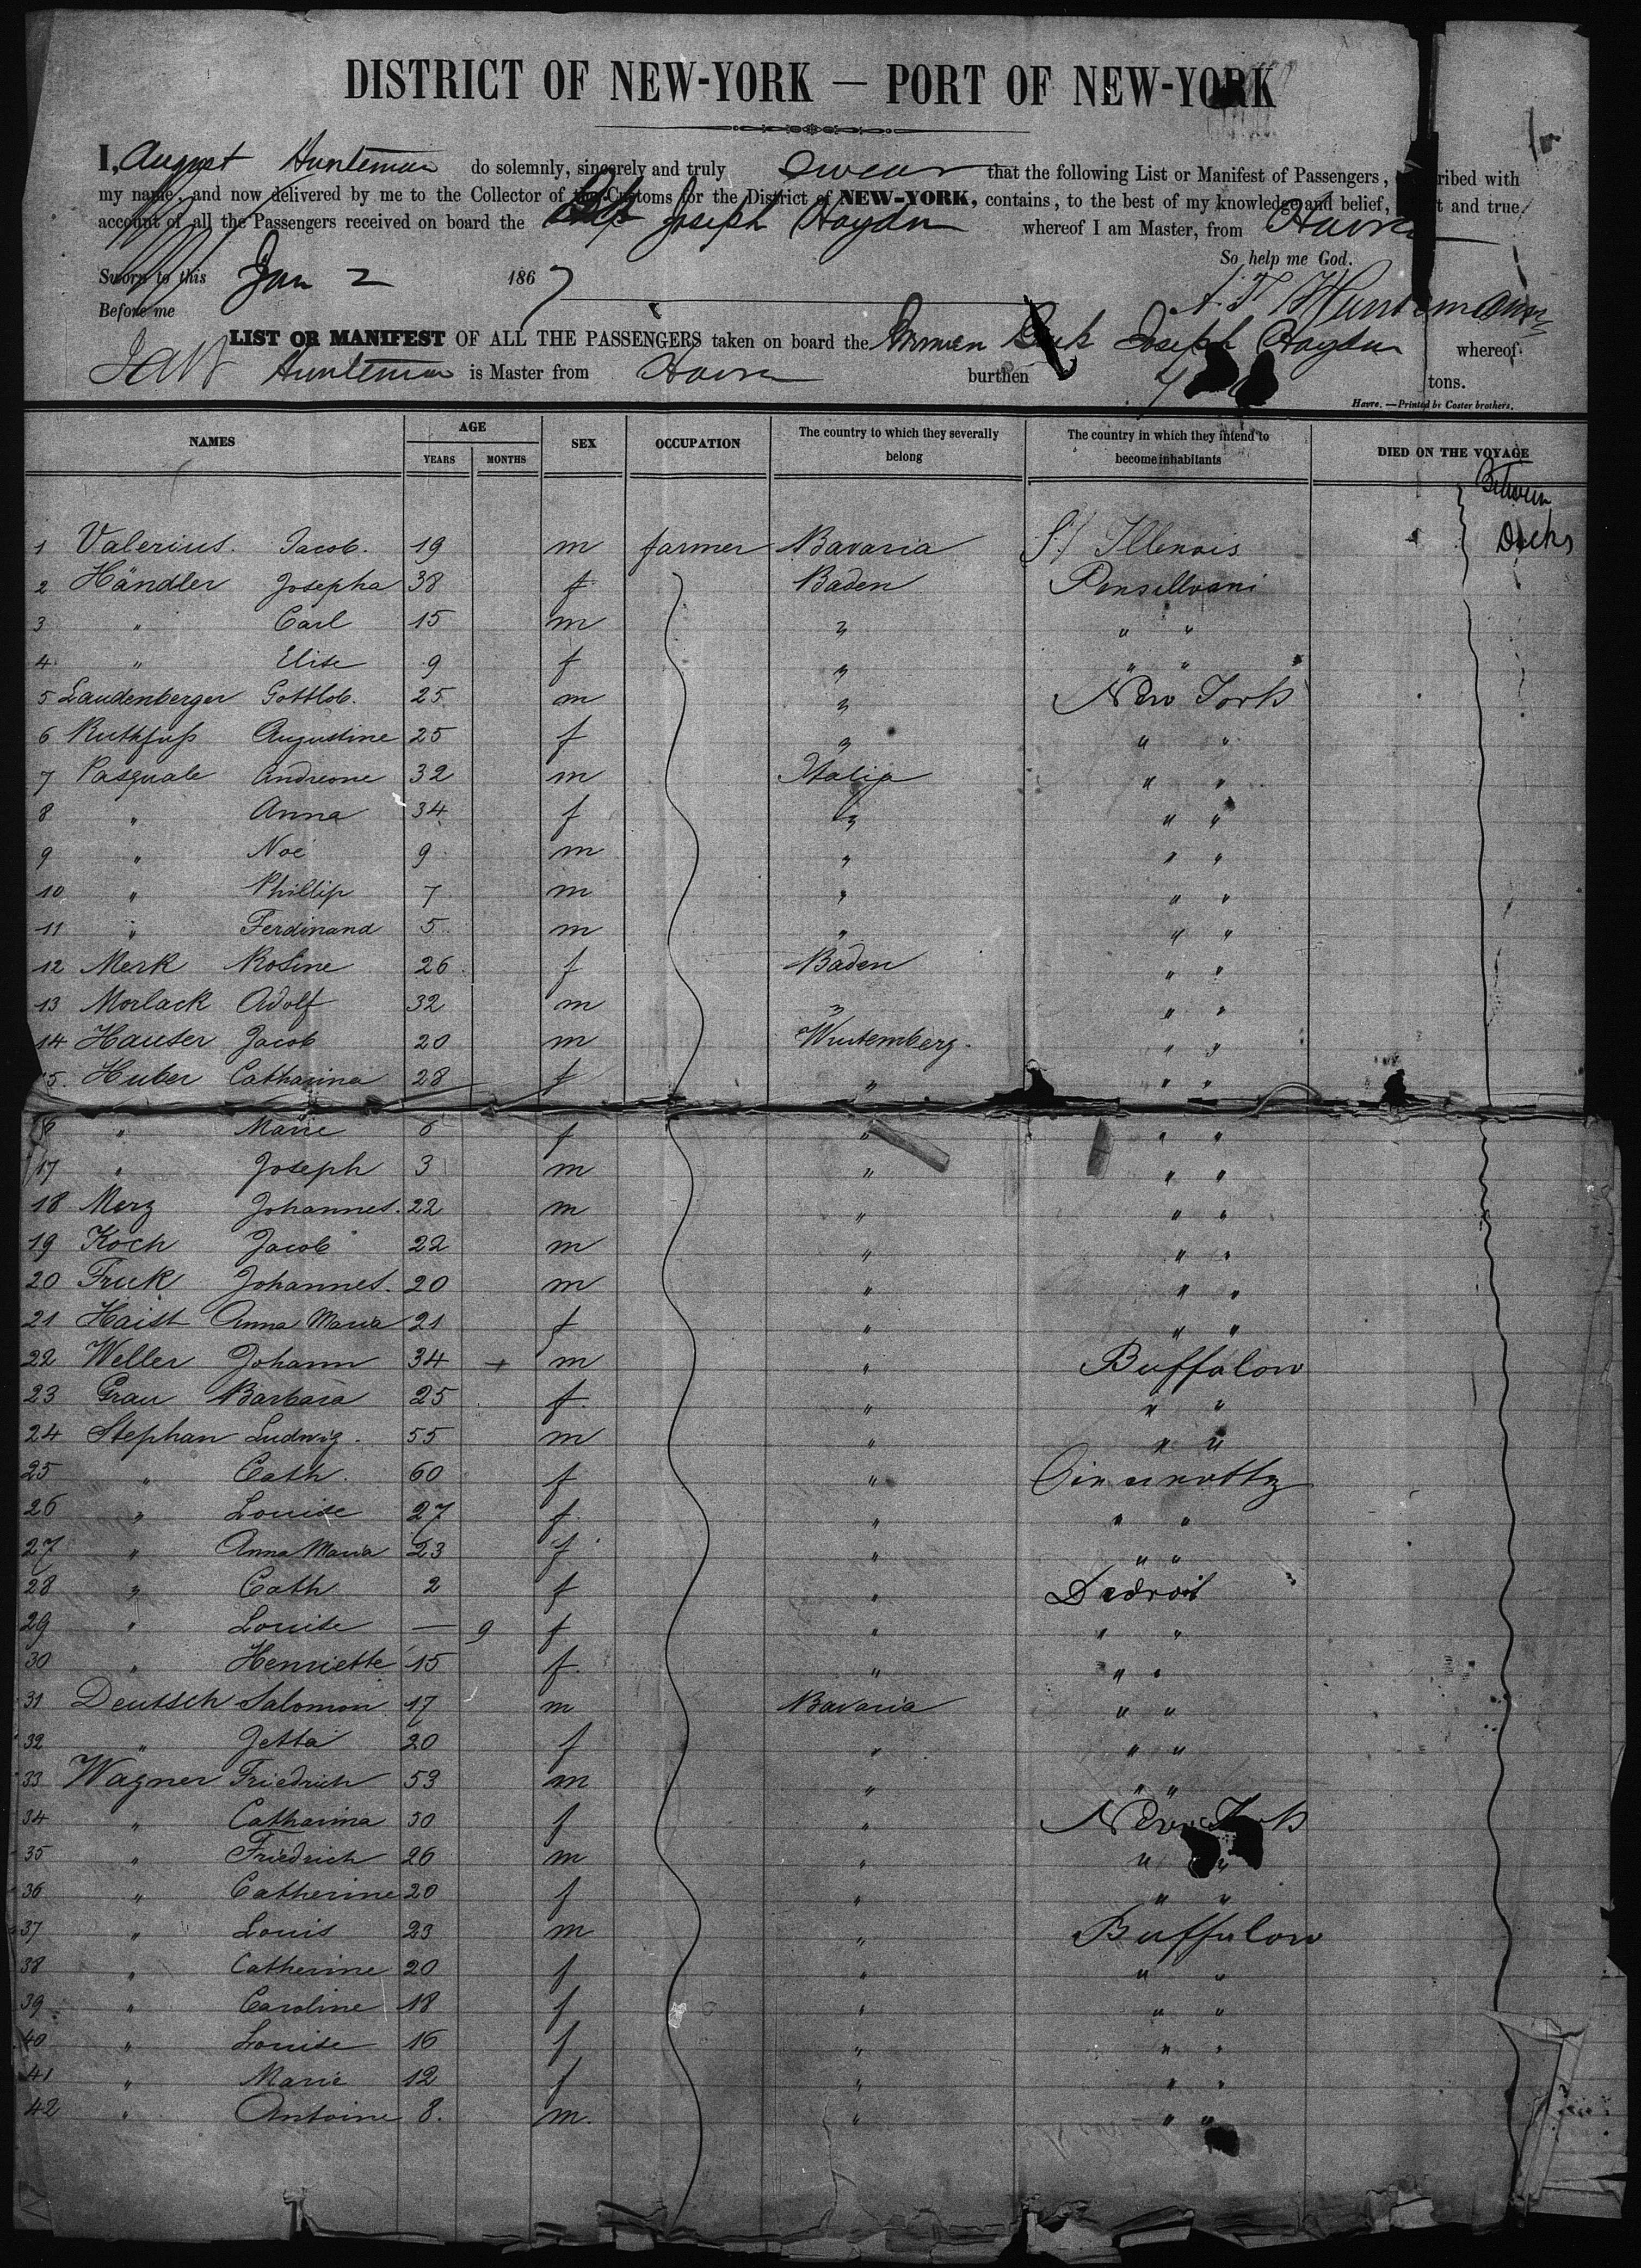 DISTRICT OF NEW-YORK — PORT OF NEW-YORK
I, August Hunteman do solemnly, sincerely and truly swear that the following List or Manifest of Passengers, ribed with
my name, and now delivered by me to the Collector of the Customs for the District of NEW-YORK, contains, to the best of my knowledge and belief, t and true
account of all the Passengers received on board the Joseph Haydn whereof I am Master, from Havre
So help me God.
Sworn to this Jan 2 1867
Before me
LIST OR MANIFEST OF ALL THE PASSENGERS taken on board the Bremen Joseph Haydn whereof
Hunteman is Master from Havre burthen tons.
Havre. — Printed by Coster brothers.
NAMES AGE SEX OCCUPATION The country to which they severally belong The country in which they intend to become inhabitants DIED ON THE VOYAGE
YEARS MONTHS
Between
Decks
1 Valerius. Jacob. 19 m farmer Bavaria Illenois
2 Händler Josepha 38 f Baden Pensillvani
3 " Carl 15 m " " "
4 " Elise 9 f " " "
5 Laudenberger Gottlob. 25 m " New York
6 Ruthfuß Augustine 25 f " " "
7 Pasquale Andreone 32 m Italia " "
8 " Anna 34 f " " "
9 " Noé 9 m " " "
10 " Phillip 7 m " " "
11 " Ferdinand 5 m " " "
12 Merk Rosine 26 f Baden " "
13 Morlack Adolf 32 m " " "
14 Hauser Jacob 20 m Wurtemberg " "
15. Huber Catharina 28 f " " "
16 " Marie 6 f " " "
17 " Joseph 3 m " " "
18 Merz Johannes. 22 m " " "
19 Koch Jacob 22 m " " "
20 Frick Johannes. 20 m " " "
21 Haist Anna Maria 21 f " " "
22 Weller Johann 34 + m " Buffalow
23 Grau Barbara 25 f. " " "
24 Stephan Ludwig. 55 m " " "
25 " Cath. 60 f " Cincinnotty
26 " Louise 27 f. " " "
27 " Anna Maria 23 f " " "
28 " Cath 2 f " Dedroit
29 " Louise — 9 f " " "
30 " Henriette 15 f. " " "
31 Deutsch Salomon 17 m Bavaria " "
32 " Jetta 20 f " " "
33 Wagner Friedrich 53 m " " "
34 " Catharina 50 f " New York
35 " Friedrich 26 m " " "
36 " Catherine 20 f " " "
37 " Louis 23 m " Buffalow
38 " Catherine 20 f " " "
39 " Caroline 18 f " " "
40 " Louise 16 f " " "
41 " Marie 12 f " " "
42 " Antoine 8. m. " " "